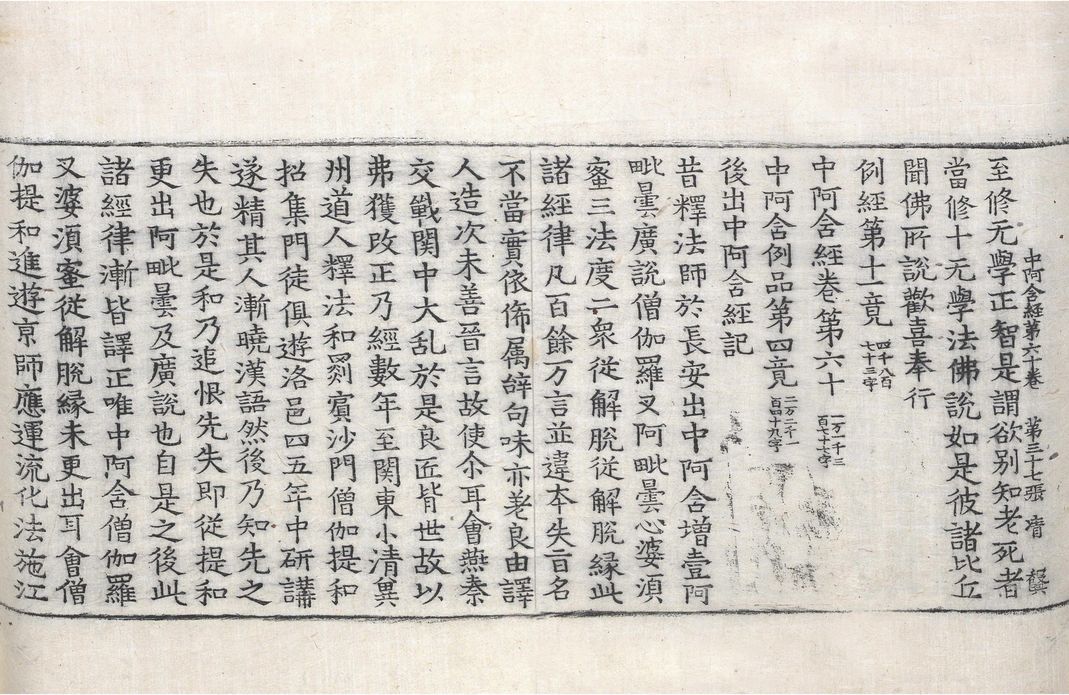 中阿含經第六十卷 第三十七張 清
至修无學正智是謂欲别知老死者
當修十无學法佛說如是彼諸比丘
聞佛所說歡喜奉行
例經第十一竟 四千八百七十三字
中阿含經卷第六十 一万一千三百七十七字
中阿含例品第四竟 二万二千一百四十九字
後出中阿含經記
昔釋法師於長安出中阿含增壹阿
毗曇廣說僧伽羅叉阿毗曇心婆湏
蜜三法度二衆從解脫從解脫緣此
諸經律凡百餘万言並違本失旨名
不當實依俙属辝句味亦差良由譯
人造次未善晉言故使尒耳會燕秦
交戰関中大乱於是良匠背世故以
弗獲改正乃經數年至関東小清冀
州道人釋法和罽賓沙門僧伽提和
招集門徒俱遊洛邑四五年中研講
遂精其人漸曉漢語然後乃知先之
失也於是和乃追恨先失即從提和
更出阿毗曇及廣說也自是之後此
諸經律漸皆譯正唯中阿含僧伽羅
叉婆湏蜜從解脫緣未更出耳會僧
伽提和進遊京師應運流化法施江